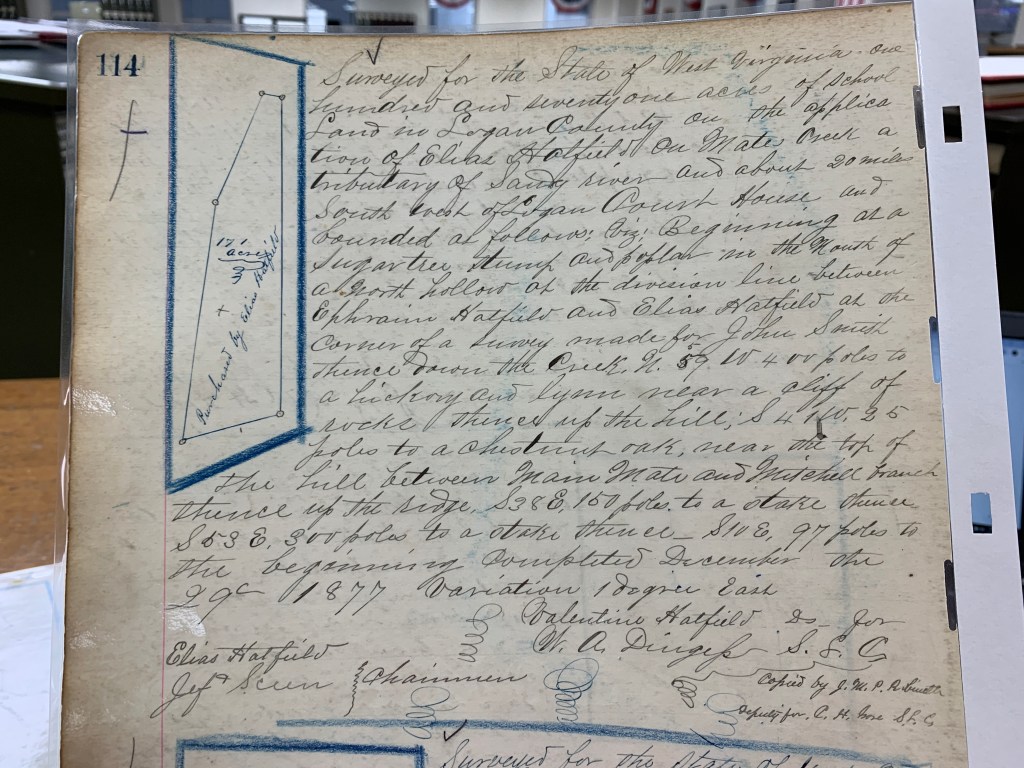 114
Surveyed for the State of West Virginia one
hundred and seventy one acres of School
Land in Logan County on the applica
tion of Elias Hatfield on Mate Creek a
tributary of Sandy river and about 20 miles
South west of Logan Court House and
bounded as follows; Viz; Beginning at a
Sugartree stump and poplar in the Mouth of
a North hollow at the division line between
Ephraim Hatfield and Elias Hatfield at the
corner of a survey made for John Smith
thence down the Creek, N. 59 W 400 poles to
a hickory and lynn near a cliff of
rocks thence up the hill, S 4 W. 25
poles to a chestnut oak, near the top of
the hill between Main Mate and Mitchell branch
thence up the ridge, S38E, 150 poles to a stake thence
S53E, 300 poles to a stake thence S10E, 97 poles to
the beginning Completed December the
29th 1877 Variation 1 degree East
Valentine Hatfield Ds for
W. A. Dingess S. L. C
Elias Hatfield
Jeff
Chainmen
Copied by J. M. P.
deputy for C. H. S. L. C.
171
acres
Purchased by Elias Hatfield
Surveyed for the State of